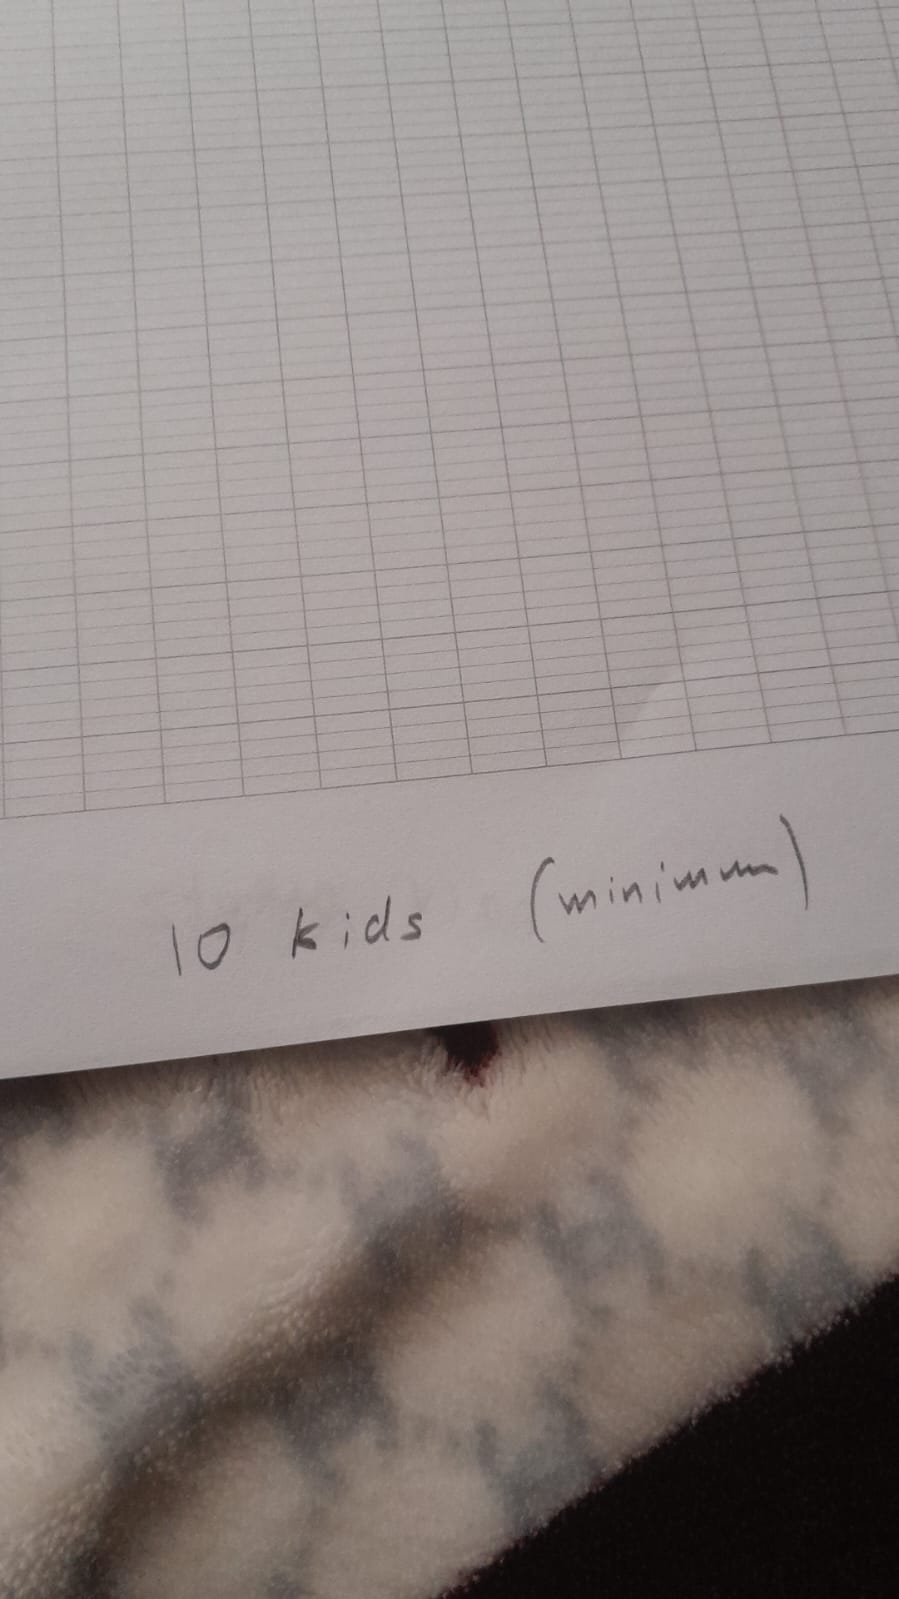 10 kids (minimum)